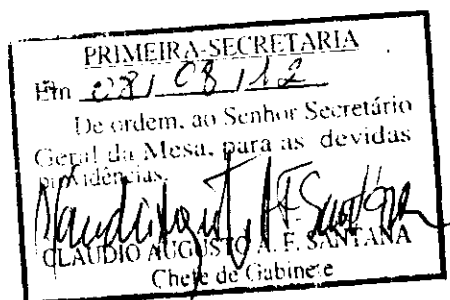 PRIMEIRA-SECRETARIA
Em 08/08/12
De ordem, ao Senhor Secretário
Geral da Mesa, para as devidas
providências.
CLAUDIO AUGUSTO A. F. SANTANA
Chefe de Gabinete